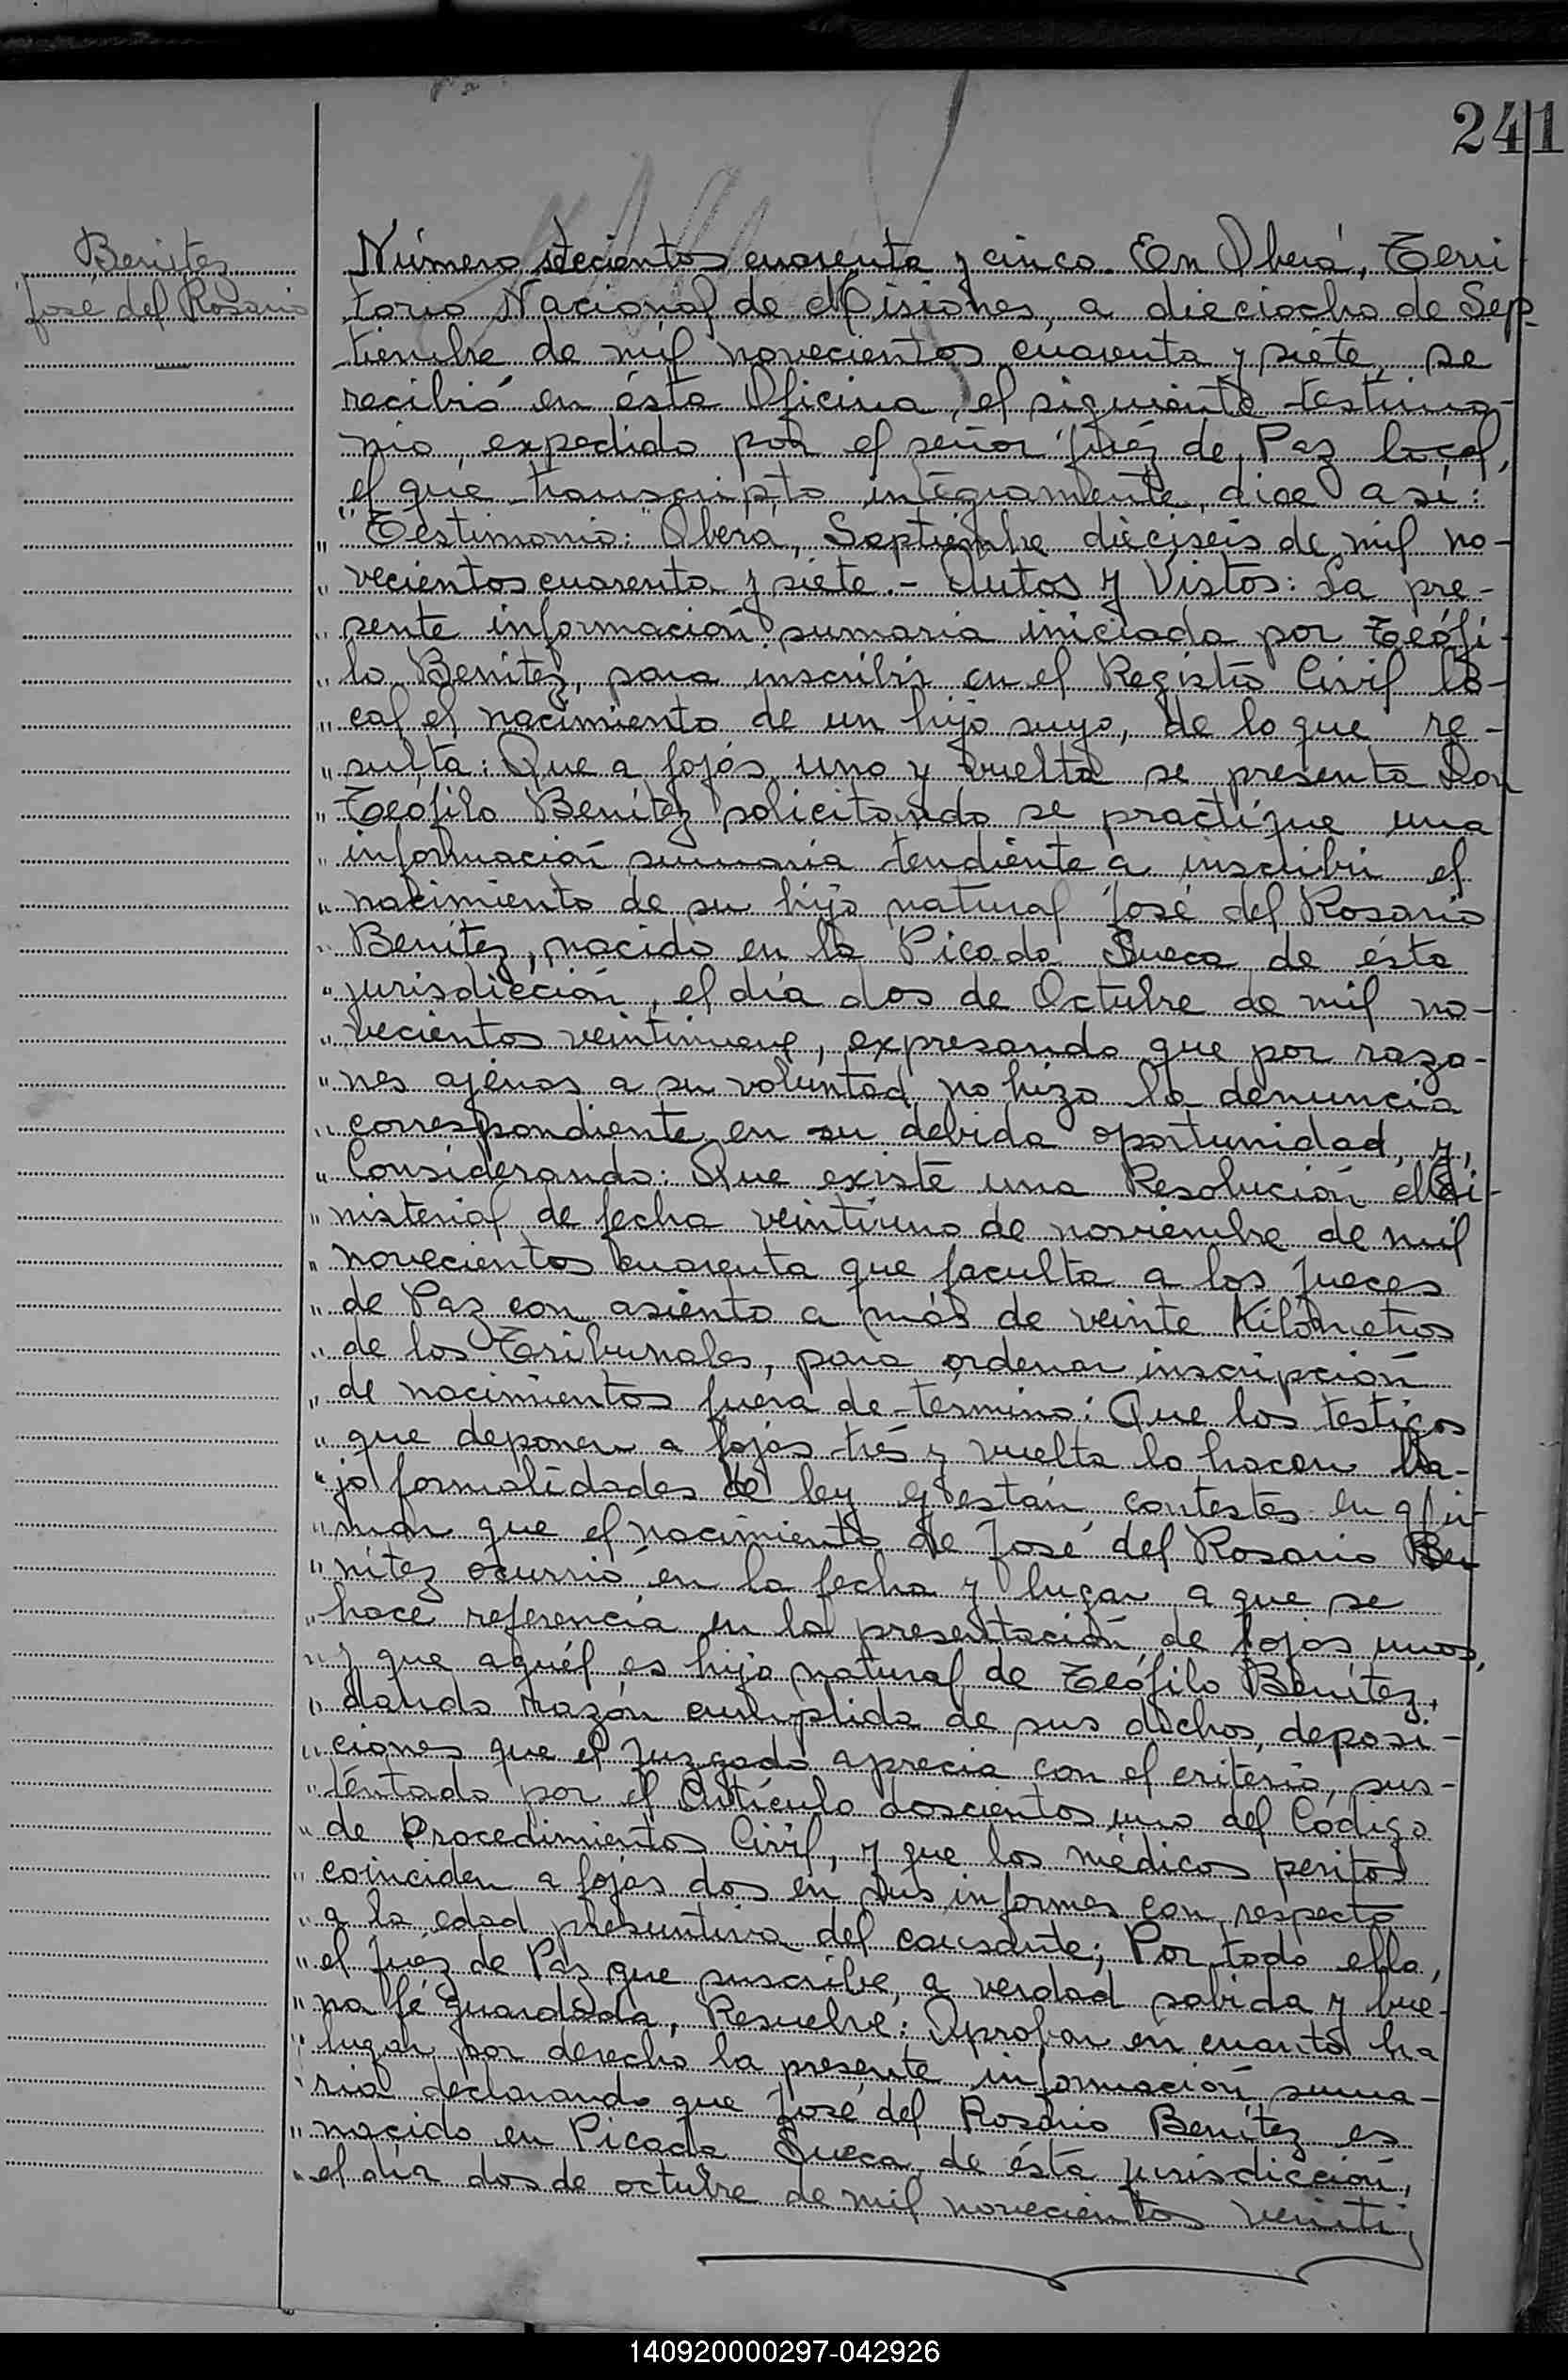 241
Benitez
José del Rosario
Número setecientos cuarenta y cinco. En Oberá, Terri-
torio Nacional de Misiones, a dieciocho de Sep-
tiembre de mil novecientos cuarenta y siete, se
recibió en ésta Oficina, el siguiente testimo-
nio, expedido por el señor Juéz de Paz local,
el que transcripto íntegramente, dice así:
"Testimonio: Oberá, Septiembre dieciseis de mil no-
"vecientos cuarenta y siete.- Autos y Vistos: La pre-
"sente información sumaria iniciada por Teófi-
"lo Benítez, para inscribir en el Registro Civil lo-
"cal el nacimiento de un hijo suyo, de lo que re-
"sulta: Que a fojas uno y vuelta se presenta Don
"Teófilo Benítez solicitando se practique una
"información sumaria tendiente a inscribir el
"nacimiento de su hijo natural José del Rosario
"Benítez, nacido en la Picada Sueca de ésta
"jurisdicción, el día dos de Octubre de mil no-
"vecientos veintinueve, expresando que por razo-
"nes ajenas a su voluntad no hizo la denuncia
"correspondiente en su debida oportunidad, y,
"Considerando: Que existe una Resolución Mi-
"nisterial de fecha veintiuno de noviembre de mil
"novecientos cuarenta que faculta a los Jueces
"de Paz con asiento a más de veinte Kilómetros
"de los Tribunales, para ordenar inscripción
"de nacimientos fuera de término: Que los testigos
"que deponen a fojas tres y vuelta lo hacen ba-
"jo formalidades de ley y están contestes en afir-
"mar que el nacimiento de José del Rosario Be-
"nítez ocurrió en la fecha y lugar a que se
"hace referencia en la presentación de fojas unos,
"y que aquél es hijo natural de Teófilo Benítez,
"dando razón cumplida de sus dichos, deposi-
"ciones que el Juzgado aprecia con el criterio sus-
"tentado por el Artículo doscientos uno del Código
"de Procedimientos Civil, y que los médicos peritos
"coinciden a fojas dos en sus informes con respecto
"a la edad presuntiva del causante; Por todo ello,
"el Juéz de Paz que suscribe, a verdad sabida y bue-
"na fé guardada, Resuelve: Aprobar en cuanto ha
"lugar por derecho la presente información suma-
"ria declarando que José del Rosario Benítez es
"nacido en Picada Sueca, de ésta jurisdicción,
"el día dos de octubre de mil novecientos veinti
140920000297-042926